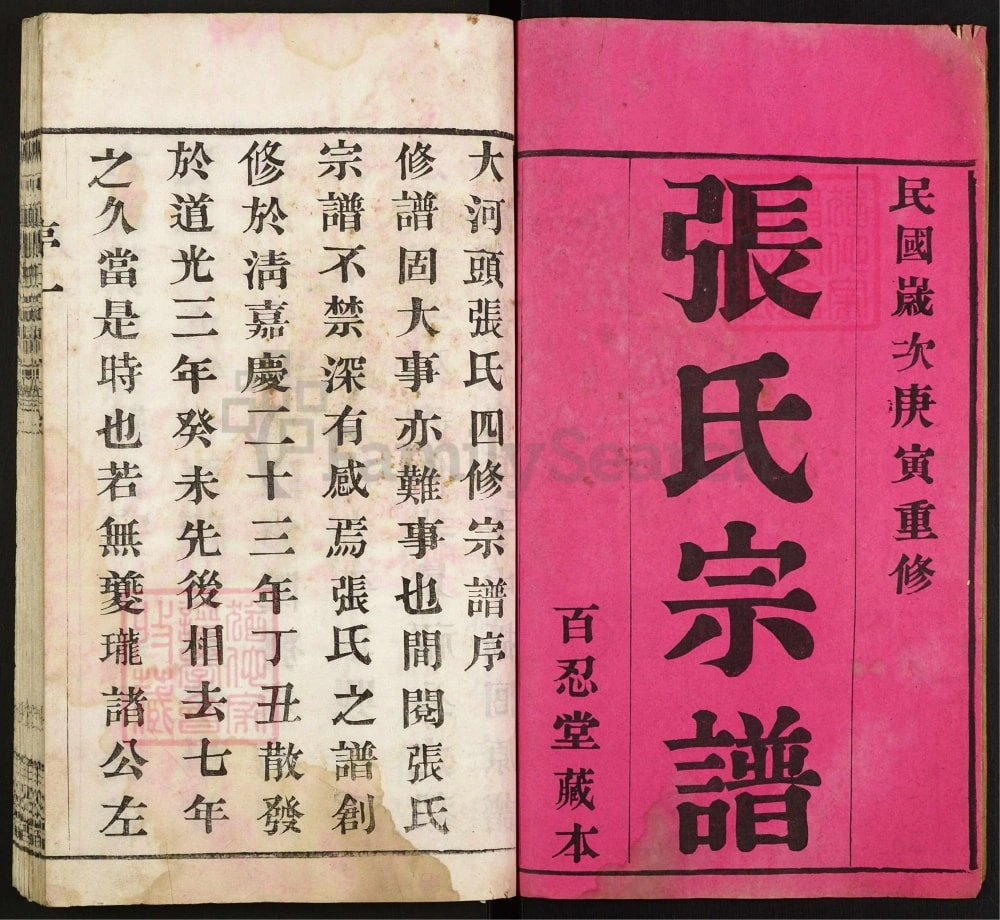 民國歲次庚寅重修
張氏宗譜
百忍堂藏本
大河頭張氏四修宗譜序
修譜固大事亦難事也間閱張氏
宗譜不禁深有感焉張氏之譜創
修於淸嘉慶二十三年丁丑散發
於道光三年癸未先後相去七年
之久當是時也若無夔瓏諸公左
序 一
FamilySearch